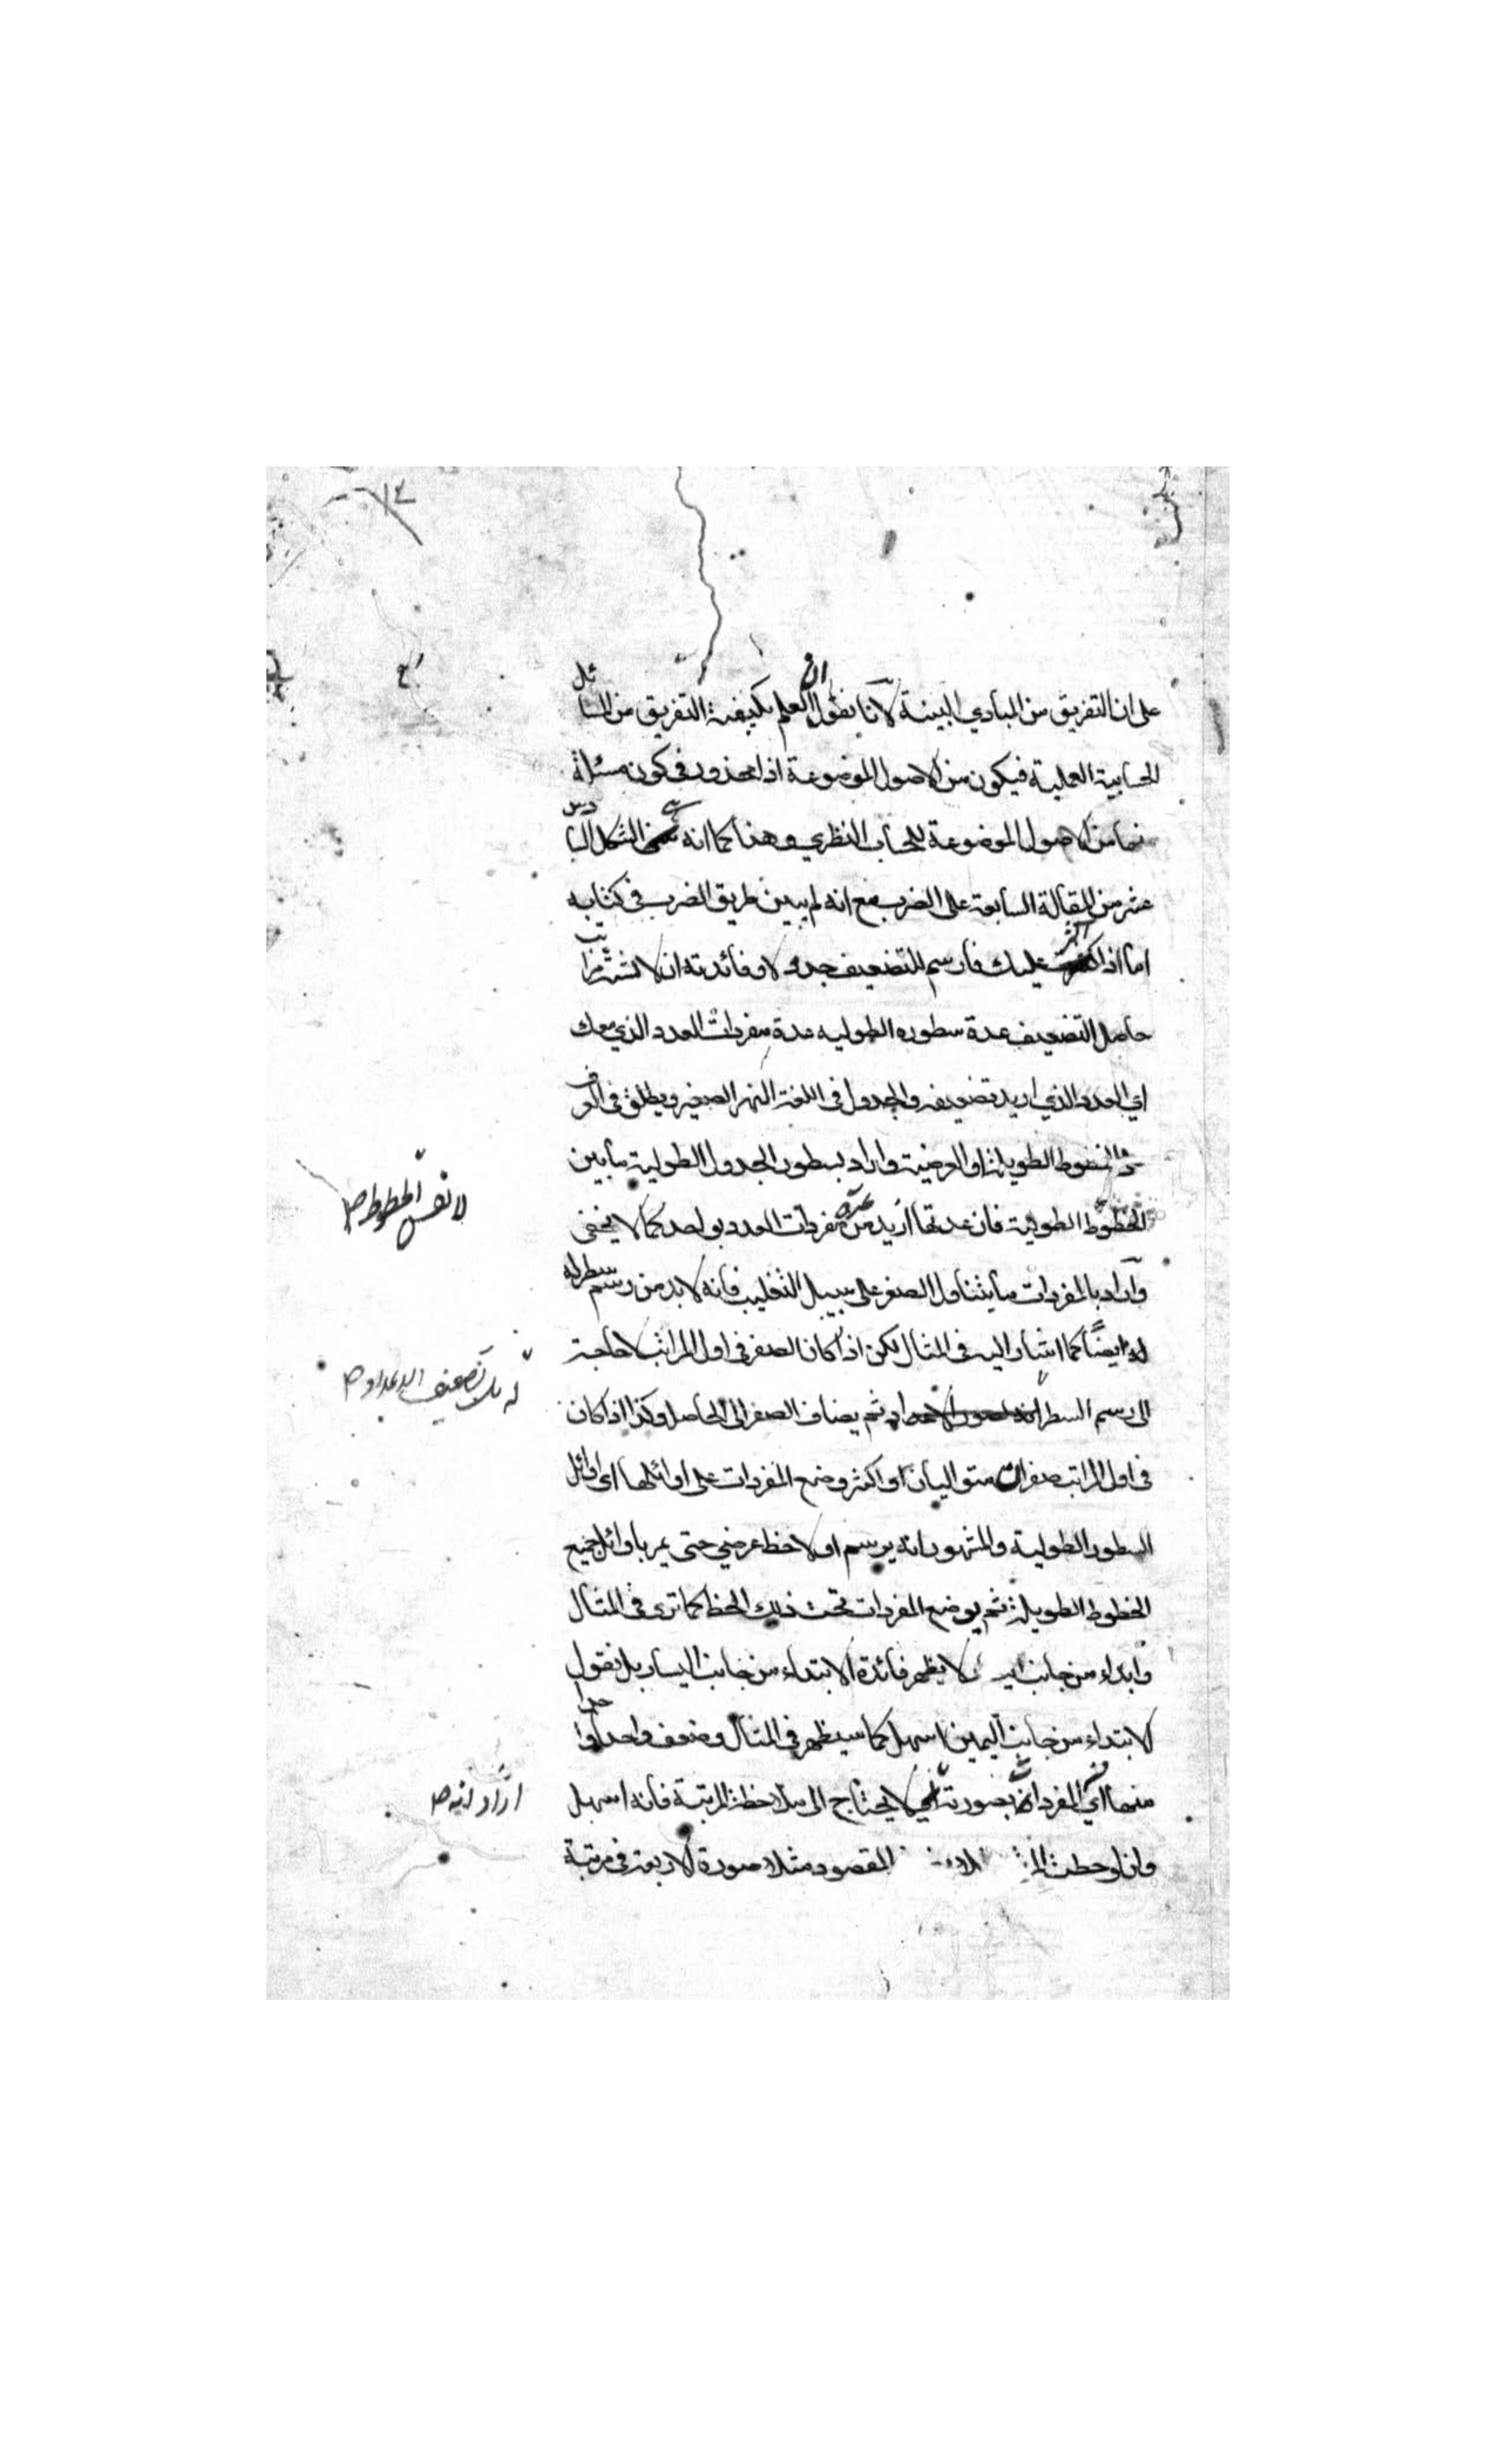 على ان التفريق من المبادي البينة لانا نقول ان العلم بكيفية التفريق من المسائل
الحسابية العملية فيكون من الاصول الموضوعة اذ لا محذور في كون مسئلة
من الاصول الموضوعة للحساب النظري وهذا كما انه الشكل السادس
عشر من المقالة السابعة على الضرب مع انه لم يبين طريق الضرب في كتابه
اما اذا كثرت عليك فارسم للتضعيف جدولا وفائدته ان لا تشتد مراتب
حاصل التضعيف عدة سطوره الطولية عدة مفردات العدد الذي معك
اي العدد الذي اريد تضعيفه والجدول في اللغة النهر الصغير ويطلق في العرف
الخطوط الطويلة او العرضية واراد بسطور الجدول الطولية ما بين
الخطوط الطولية فان عدتها ازيد من عدة مفردات العدد بواحد كما لا يخفى
واراد بالمفردات ما يتناول الصفر على سبيل التغليب فانه لا بد من رسم سطر له
ايضا كما اشار اليه في المثال لكن اذا كان الصفر في اول المراتب لا حاجة
الى رسم السطر ثم يضاف الصفر الى الحاصل وكذا اذا كان
في اول المراتب صفران متواليان او اكثر وضع المفردات على اوائلها اي اوائل
السطور الطولية والمشهور انه يرسم اولا خط عرضي حتى يمر باوائل جميع
الخطوط الطويلة ثم يوضع المفردات تحت ذلك الخط كما ترى في المثال
وابداء من جانب لا يظهر فائدة الابتداء من جانب اليسار بل نقول
الابتداء من جانب اليمين اسهل كما سيظهر في المثال وضعف واحدا واحدا
منها اي المفردات بصورته لا يحتاج الى ملاحظة المرتبة فانه اسهل
وان لوحظت المقصود مثلا صورة الاربعة في مرتبة
لا نفس الخطوط صح
له بل تضعيف الاعداد صح
اراد انه صح